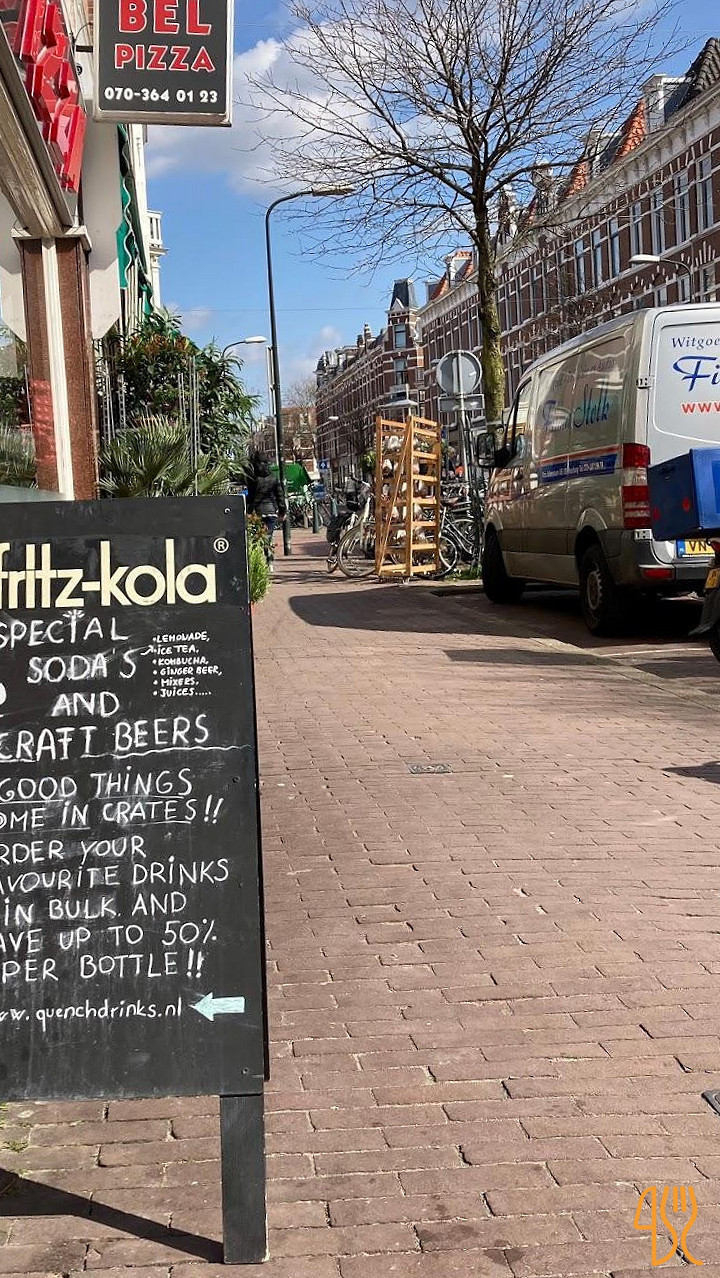 BEL
PIZZA
070-364 01 23
fritz-kola®
SPECIAL
SODA'S
•LEMONADE,
•ICE TEA,
•KOMBUCHA,
•GINGER BEER,
•MIXERS,
•JUICES.....
AND
CRAFT BEERS
GOOD THINGS
OME IN CRATES!!
RDER YOUR
AVOURITE DRINKS
IN BULK AND
AVE UP TO 50%
PER BOTTLE!!
ww.quenchdrinks.nl
Witgoe
Fi
www.
Melk
VN